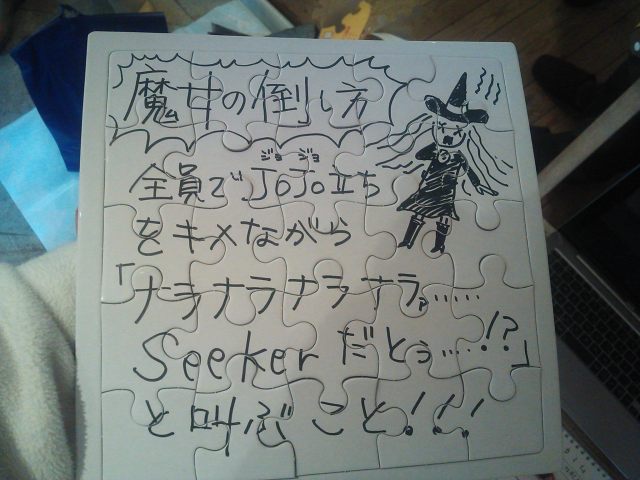 魔女の倒し方
ジョジョ
全員で、JoJo立ち
をキメながら
「ナラナラナラナラァ……
Seekerだとぅ…!?」
と叫ぶこと!!!